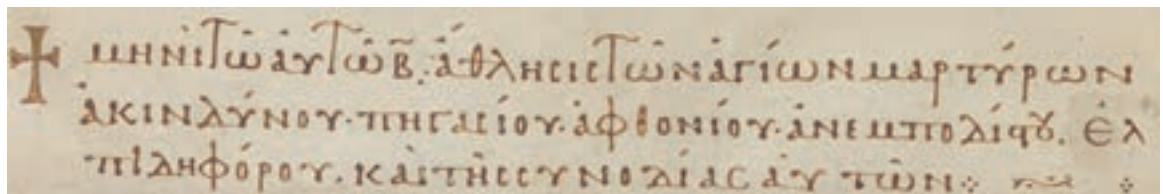 ☩ μηνὶ τῶ ἀυτῶ β̅. ἄθλησις τῶν ἁγίων μαρτύρων
ἀκινδύνου· πηγασίου· ἀφθονίου· ἀνεμποδίστου. Ἐλ
πιδηφόρου. καὶ τῆς συνοδίας αὐτῶν